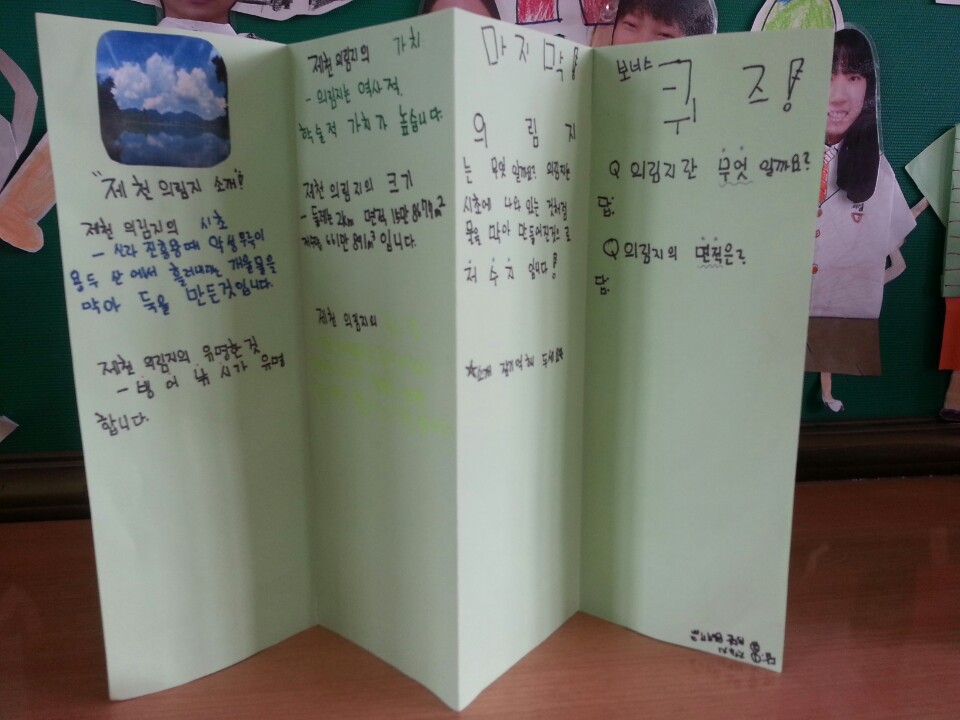 "제천 의림지 소개"!
제천 의림지의 시초
- 신라 진흥왕때 악성 우륵이
용두 산에서 흘러내리는 개울물을
막아 둑을 만든것입니다.
제천 의림지의 유명한 것
- 빙어 낚시가 유명
합니다.
제천 의림지의 가치
- 의림지는 역사적
학술적 가치가 높습니다.
제천 의림지의 크기
- 둘레는 2km 면적 15만 8679m²
저수량 661만 891m³입니다.
제천 의림지의
마지막!
의림지
는 무엇일까요? 의림지란
시초에 나와 있는 것처럼
물을 막아 만들어진것으로
저수지입니다!
☆소개 잘기억해 두세요☆
보너스 퀴즈!
Q 의림지란 무엇일까요?
답:
Q 의림지의 면적은?
답: